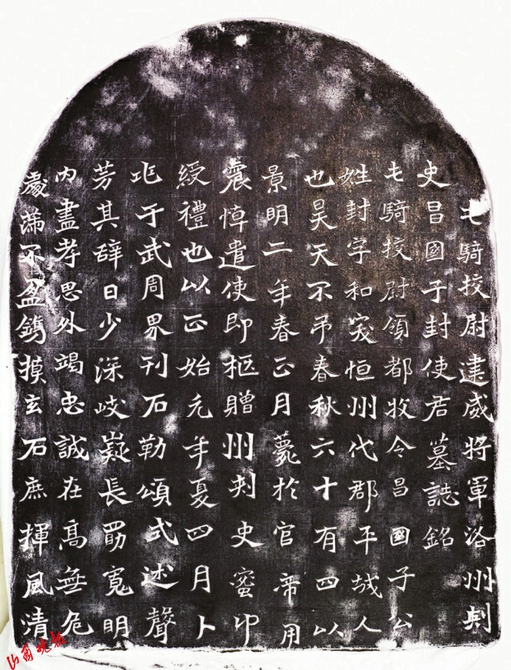 屯騎校尉建威將軍洛州刺
史昌國子封使君墓誌銘
屯騎校尉領都牧令昌國子公
姓封字和突恒州代郡平城人
也昊天不弔春秋六十有四以
景明二年春正月薨於官帝用
震悼遣使即柩贈州刺史蜜印
綬禮也以正始元年夏四月卜
兆于武周界刊石勒頌式述聲
芳其辭曰少深岐嶷長勗寬明
內盡孝思外竭忠誠在高無危
處滿不盈鐫摸玄石庶揮風清
山西晚报